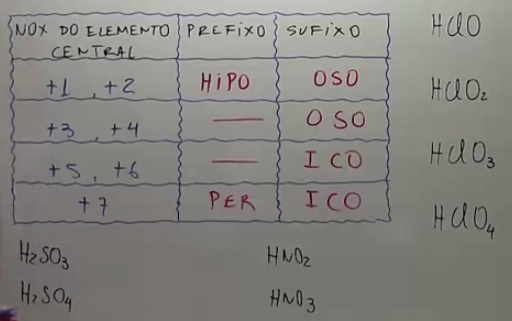 NOX DO ELEMENTO CENTRAL PREFIXO SUFIXO
+1 , +2 HIPO OSO
+3 , +4 — OSO
+5 , +6 — ICO
+7 PER ICO
HClO
HClO₂
HClO₃
HClO₄
H₂SO₃ HNO₂
H₂SO₄ HNO₃